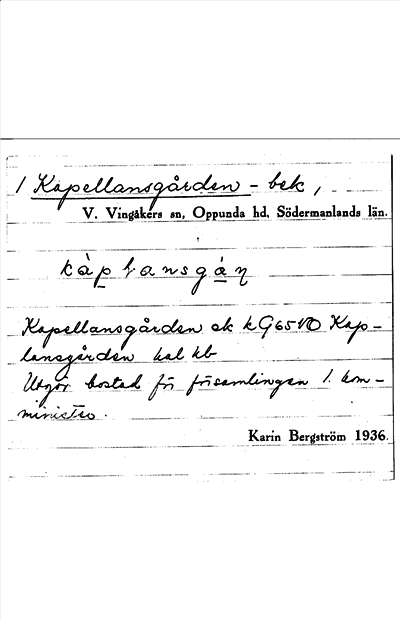 1 Kapellansgården - bek,
V. Vingåkers sn, Oppunda hd, Södermanlands län.
Kapellansgården ek kG65NO Kap-
lansgården hal kb
Utgör bostad för församlingen 1. kom-
minister.
Karin Bergström 1936.